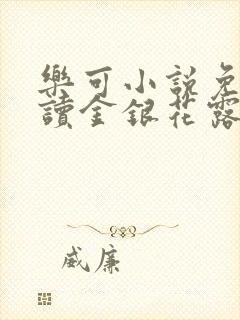 樂可小說免
讀金銀花露
威廉